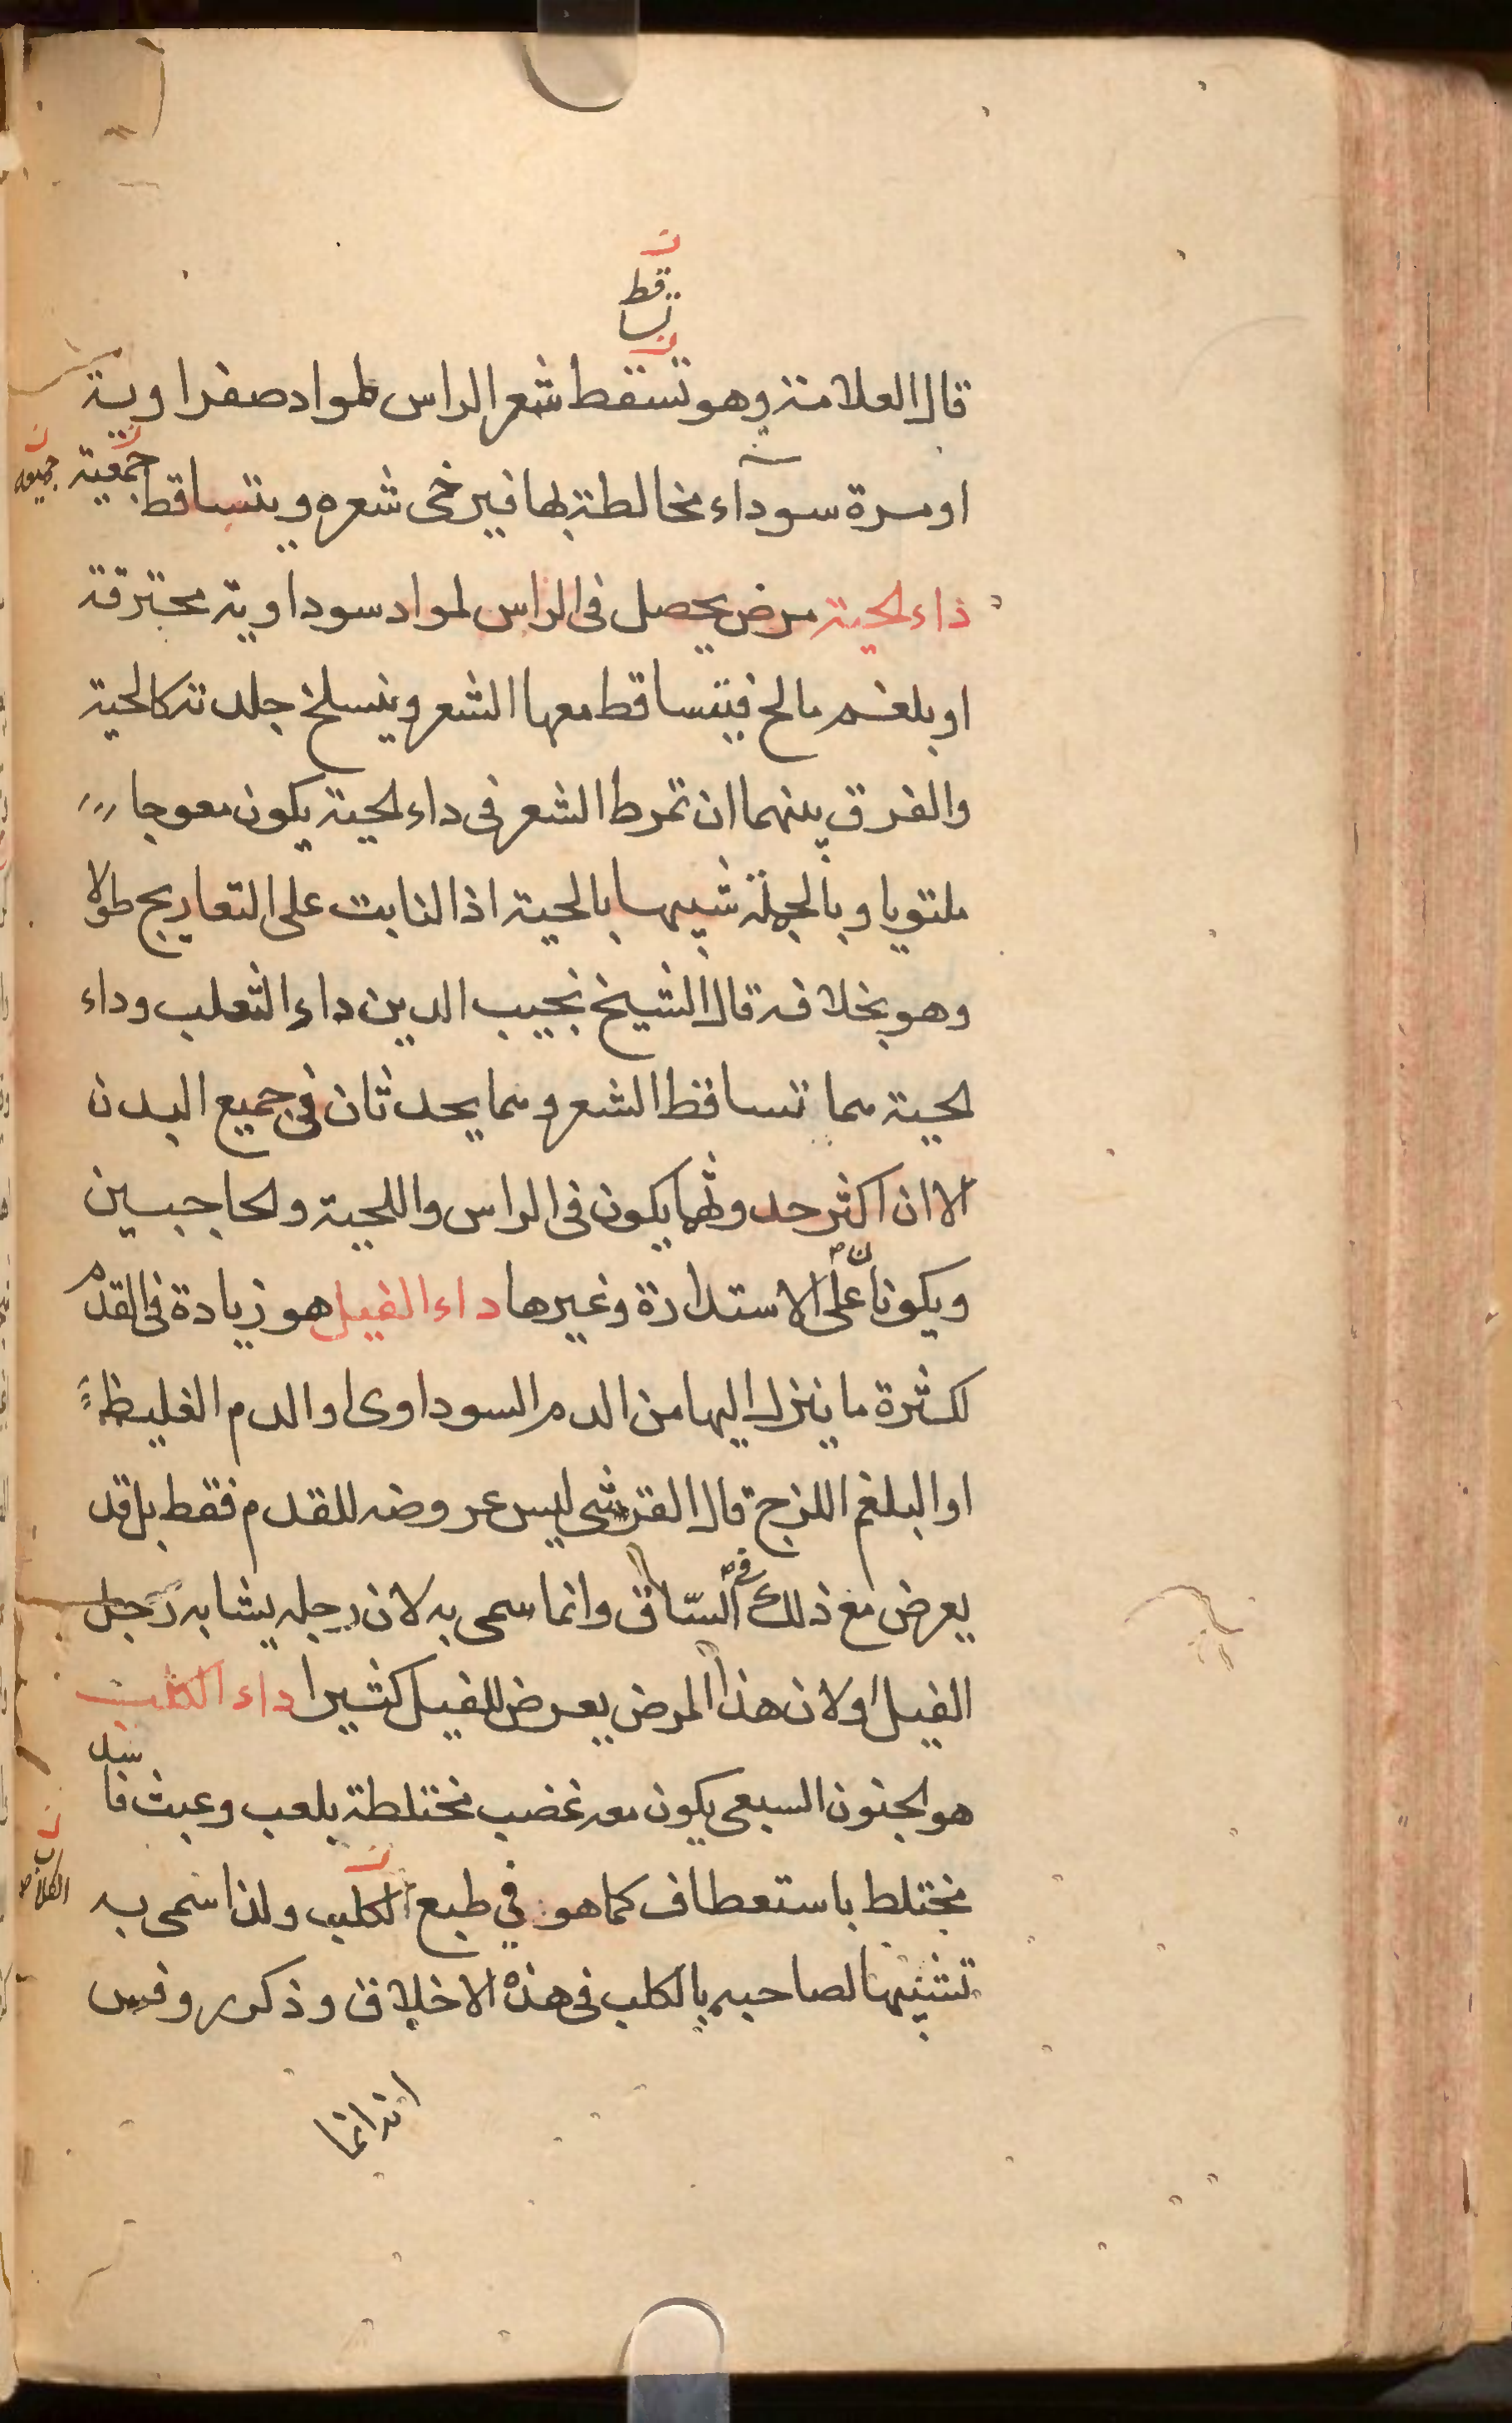 ن
تساقط
ن
قال العلامة وهو تسقط شعر الراس لمواد صفراوية
او مرة سودآء مخالطة لها فيرخى شعره ويتساقط جمعية
ن جميعه
داء لحية مرض يحصل فى الراس لمواد سوداوية محترقة
او بلغم مالح فيتساقط معها الشعر وينسلخ جلدته كالحية
والفرق بينهما ان تمرط الشعر فى داء لحية يكون معوجا
ملتويا وبالجملة شبيها بالحية اذا النابت على التعاريج طولا
وهو بخلافه قال الشيخ نجيب الدين داء الثعلب وداء
لحية مما تساقط الشعر ومما يحدثان فى جميع البدن
الا ان اكثر حدوثهما يكون فى الراس واللحية ولحاجبين
ويكونان على الاستدارة وغيرها داء الفيل هو زيادة فى القدم
لكثرة ما ينزل اليها من الدم السوداوى او الدم الغليظ
او البلغم اللزج قال القرشى ليس عروضه للقدم فقط بل قد
يعرض مع ذلك فى السّاق وانما سمى به لان رجله يشابه رجل
الفيل او لان هذا المرض يعرض للفيل كثيرا داء الكلب
هو لجنون السبعى يكون معه غضب مختلطة بلعب وعبث فاسد
مختلط باستعطاف كما هو فى طبع الكلب ولذا سمى به
ن الكلاب
تشبيها لصاحبه بالكلب فى هذه الاخلاق وذكر روفس
انه انما